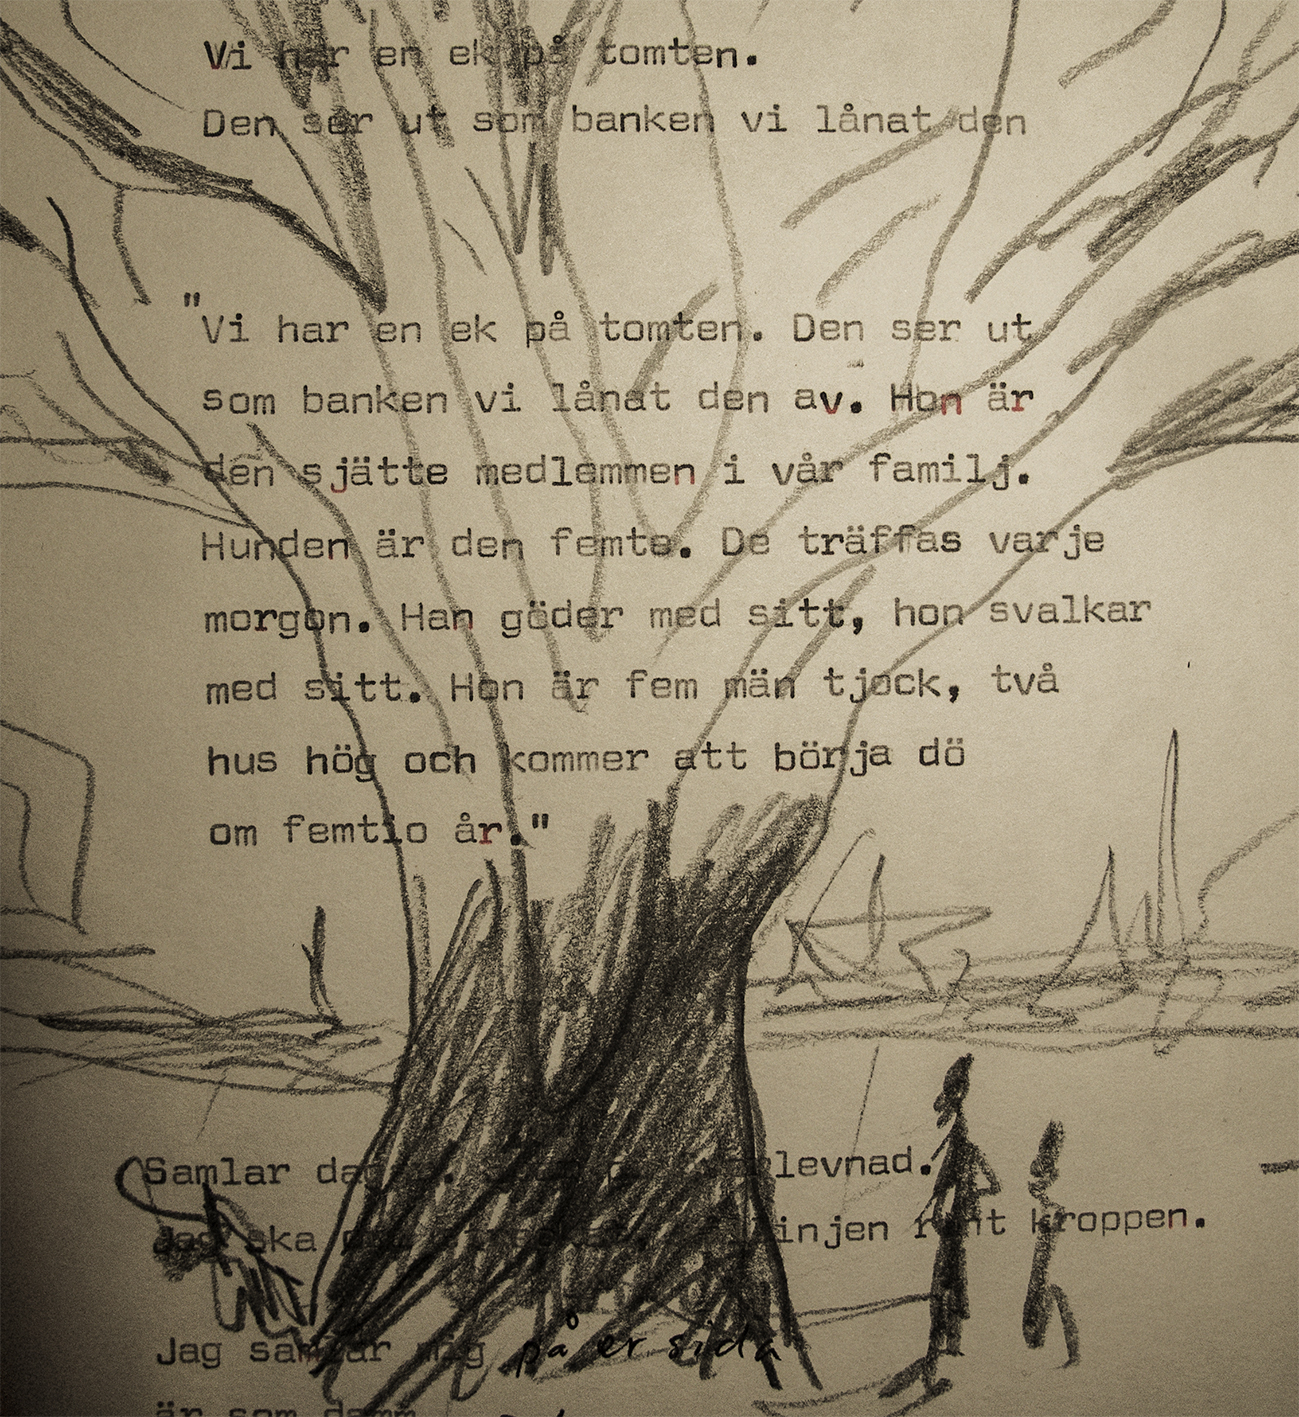 Vi har en ek på tomten.
Den ser ut som banken vi lånat den
"Vi har en ek på tomten. Den ser ut
som banken vi lånat den av. Hon är
den sjätte medlemmen i vår familj.
Hunden är den femte. De träffas varje
morgon. Han göder med sitt, hon svalkar
med sitt. Hon är fem män tjock, två
hus hög och kommer att börja dö
om femtio år."
Samlar levnad.
Jag ska linjen runt kroppen.
Jag samlar mig på er sida
är som damm